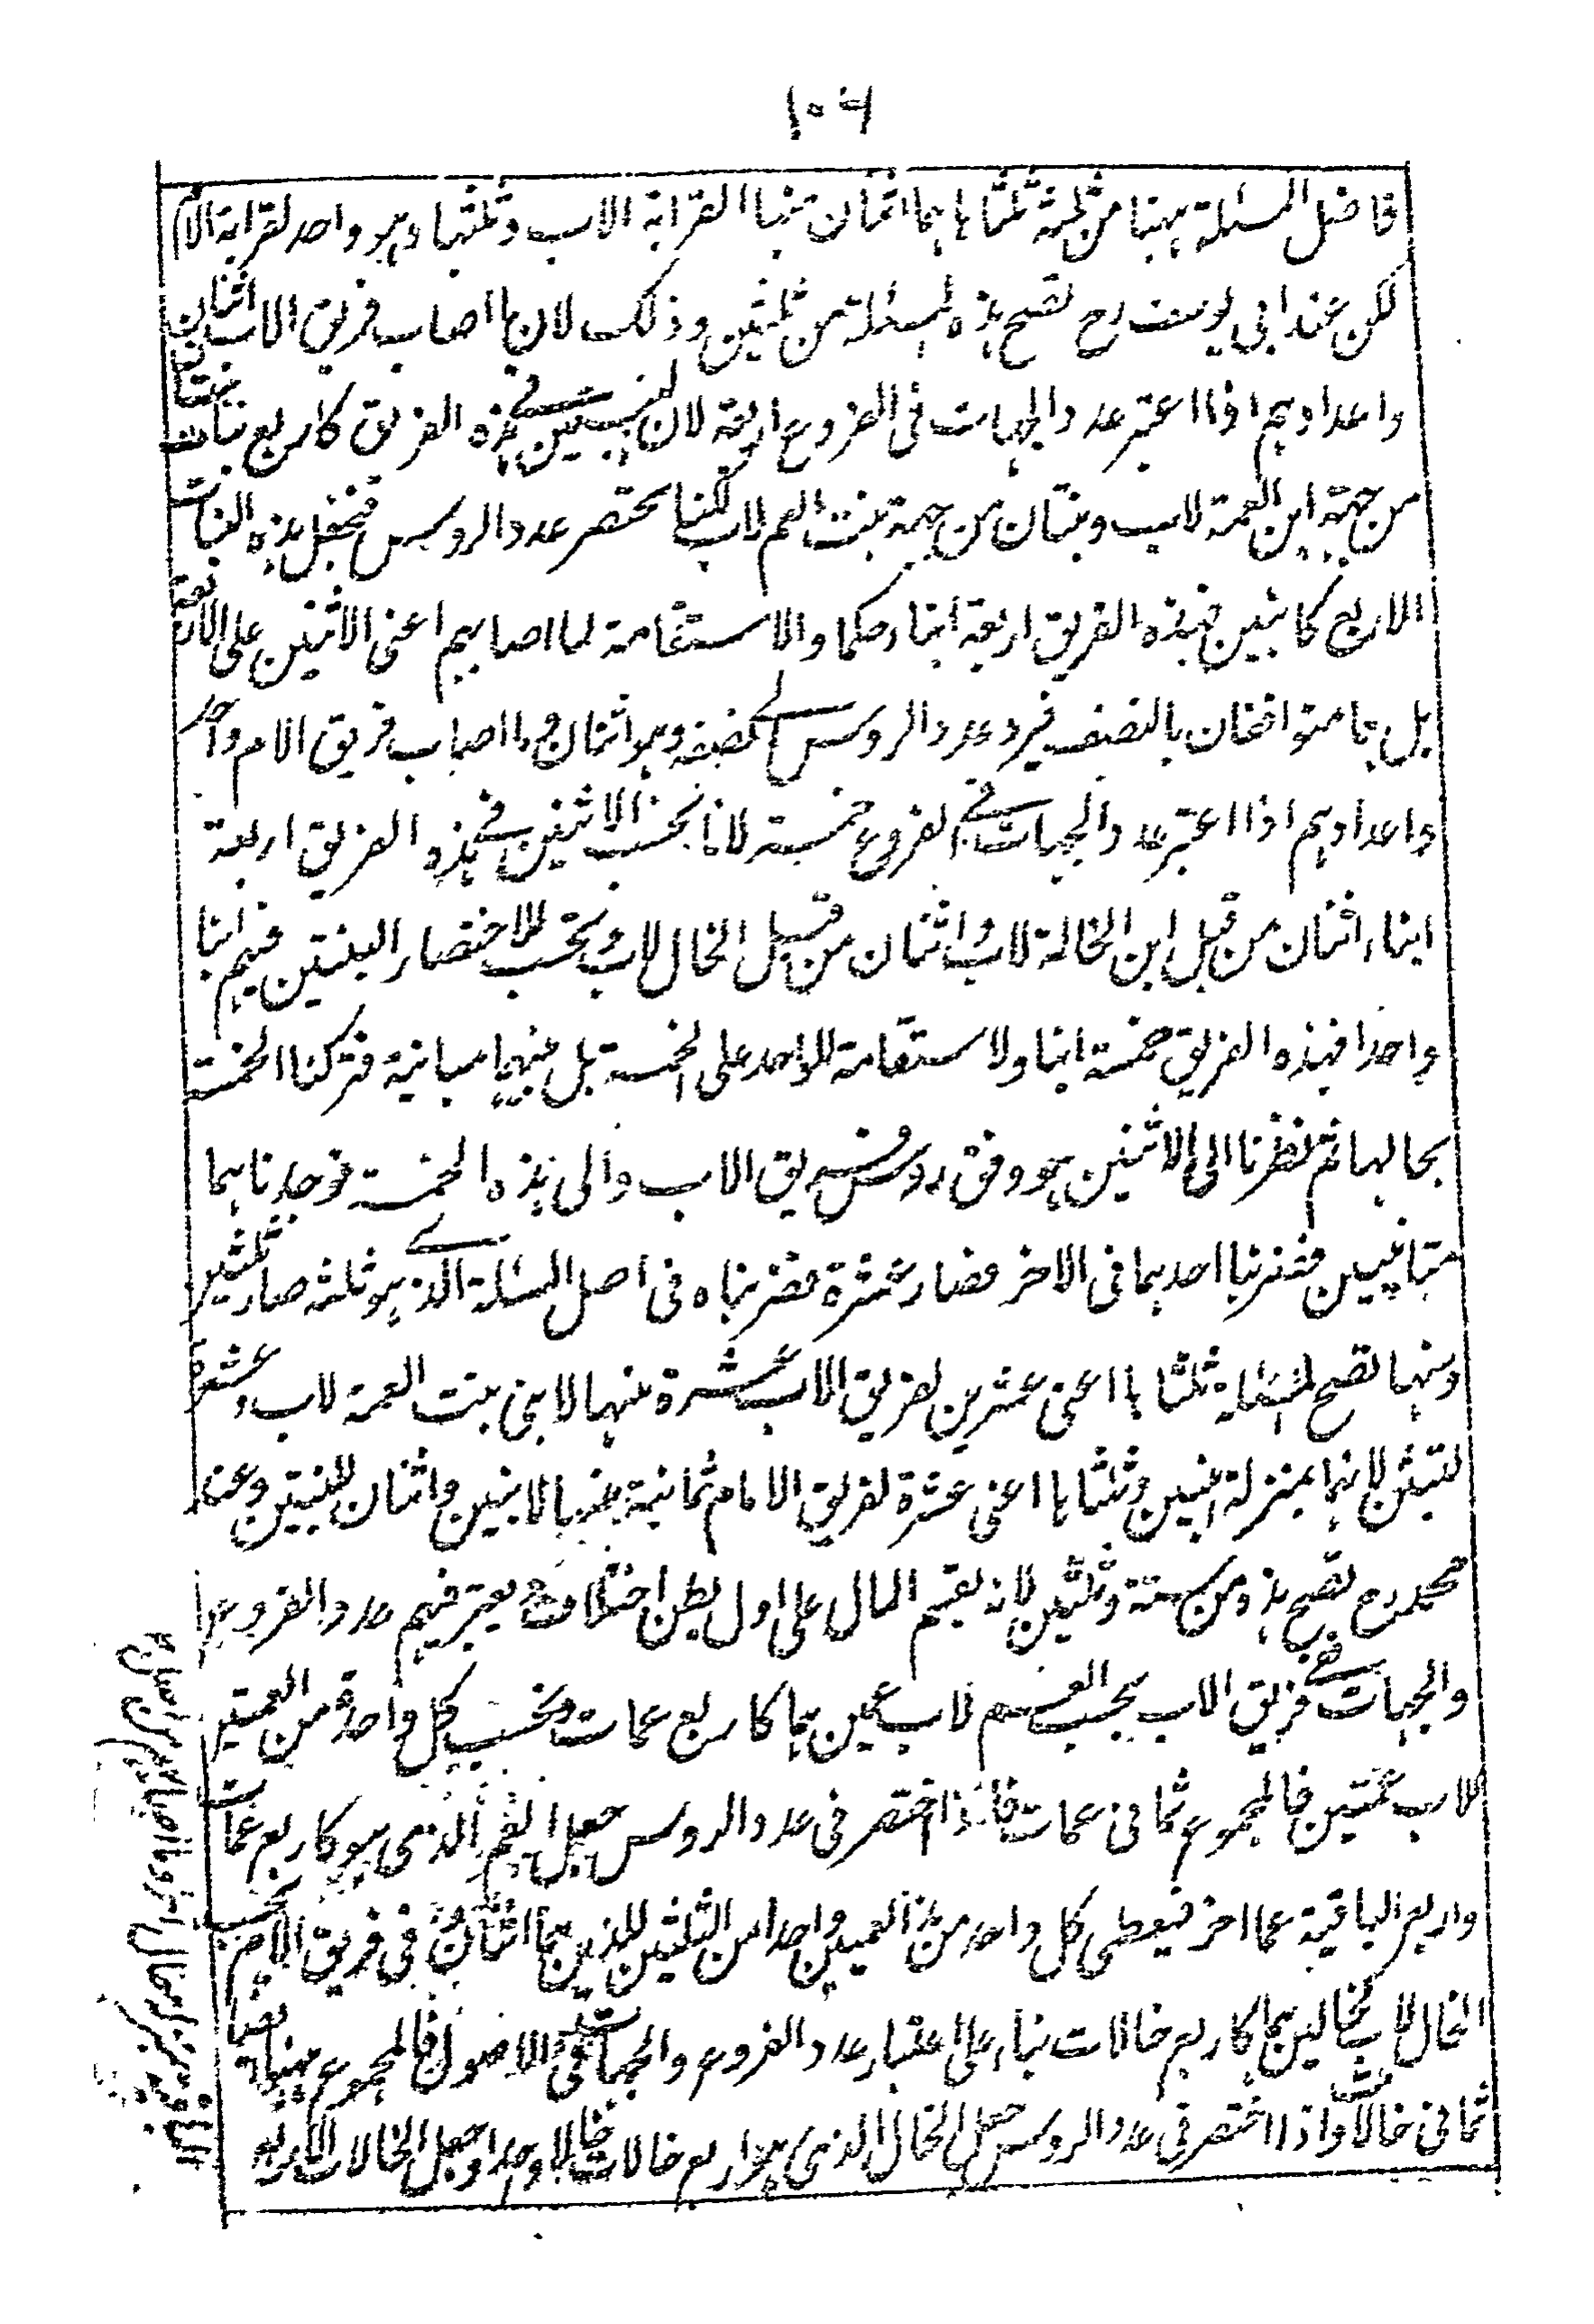 ١٠٦
فاصل المسئلة ههنا من ثلثة ثلثا ها هما اثنان منها القرابة الاب وثلثها وهو واحد لقرابة الام
لكن عند ابى يوسف رح تصح هذه المسئلة من ثلثين وذلك لان ما اصاب فريق الاب اثنان
واعدادهم اذا اعتبر عدد الجهات فى الفروع اربعة لان البنتين فے هذه الفريق كاربع بنات بنتان
من جهة ابن العمة لاب وبنتان من جهة بنت العم لاب لكنا نختصر عدد الروس فنجعل هذه البنات
الاربع كابنين فهذه الفريق اربعة ابناء حكما والاستقامة لما اصابهم اعنى الاثنين على الاربعة
بل هما متوافقان بالنصف فيرد عدد الروس الے نصفه وهو اثنان وما اصاب فريق الام واحد
واعدادهم اذا اعتبر عدد الجهات فے الفروع خمسة لانا نحسب الابنين فے هذه الفريق اربعة
ابناء اثنان من قبل ابن الخالة لاب واثنان من قبل الخال لاب ونحسب للاختصار البنتين فيهم ابنا
واحدا فهذه الفريق خمسة ابنا ولا استقامة للواحد على الخمسة بل بينهما مباينة فتركنا الخمسة
بحالها ثم نظرنا الى الاثنين هو وفق روس فريق الاب والى هذه الخمسة فوجدناهما
متباينين فضربنا احدهما فى الاخر فصار عشرة فضربناه فى اصل المسئلة الذے هو ثلثة صار ثلثين
ومنها تصح المسئلة ثلثا ها اعنى عشرين لفريق الاب عشرة منها لابنى بنت العمة لاب وعشرة
للبنتين لانهما بمنزلة ابنين وثلثا ها اعنى عشرة لفريق الام ثمانية منها لابنين واثنان للبنتين وعند
محمد رح تصح هذه من ستة وثلثين لانه يقسم المال على اول بطن اختلافه ويعتبر فيهم عدد الفروع
والجهات فے فريق الاب يحسب العم لاب عمين هما كاربع عمات ويحسب كل واحدة من العمتين
لاب عمتين فالمجموع ثمانى عمات فاذا اختصر فى عدد الروس جعل العم الذى هو كاربع عمات
واربع الباقية عما اخر فيعطى كل واحد من العمين واحدا من الثلثين الذين هما اثنان وفى فريق الام يحسب
الخال لاب كخالين هما كاربع خالات بناء على اعتبار عدد الفروع والجهات فى الاصول فالمجموع ههنا ايضا
ثمانى خالات واذا اختصر فى عدد الروس جعل الخال الذى هو اربع خالات خالا واحدا وجعل الخالات الاربع